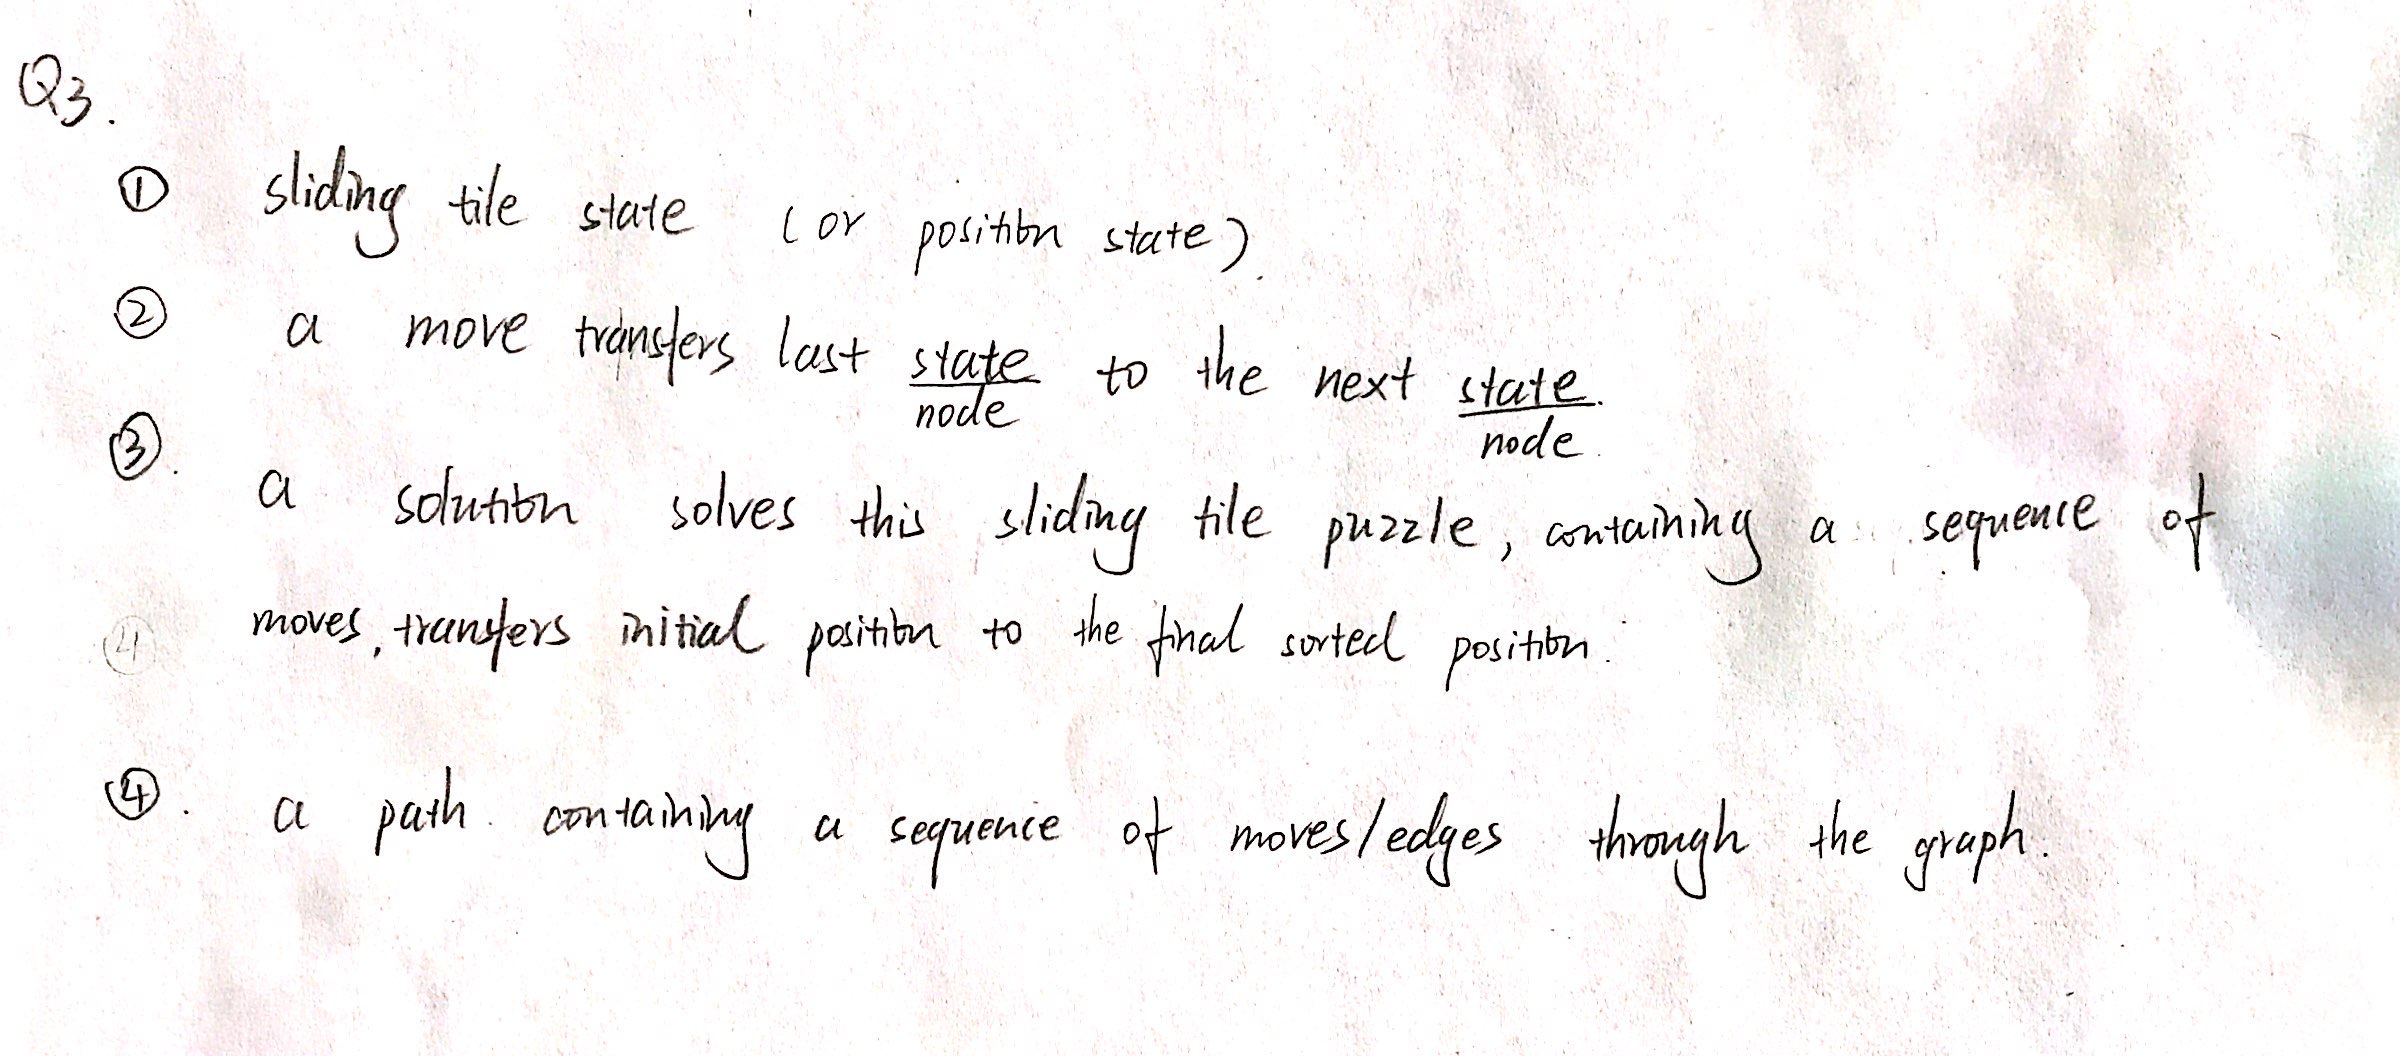 Q3.
① sliding tile state (or position state).
② a move transfers last state to the next state.
node node.
③. a solution solves this sliding tile puzzle, containing a sequence of
④ moves, transfers initial position to the final sorted position.
④. a path containing a sequence of moves/edges through the graph.